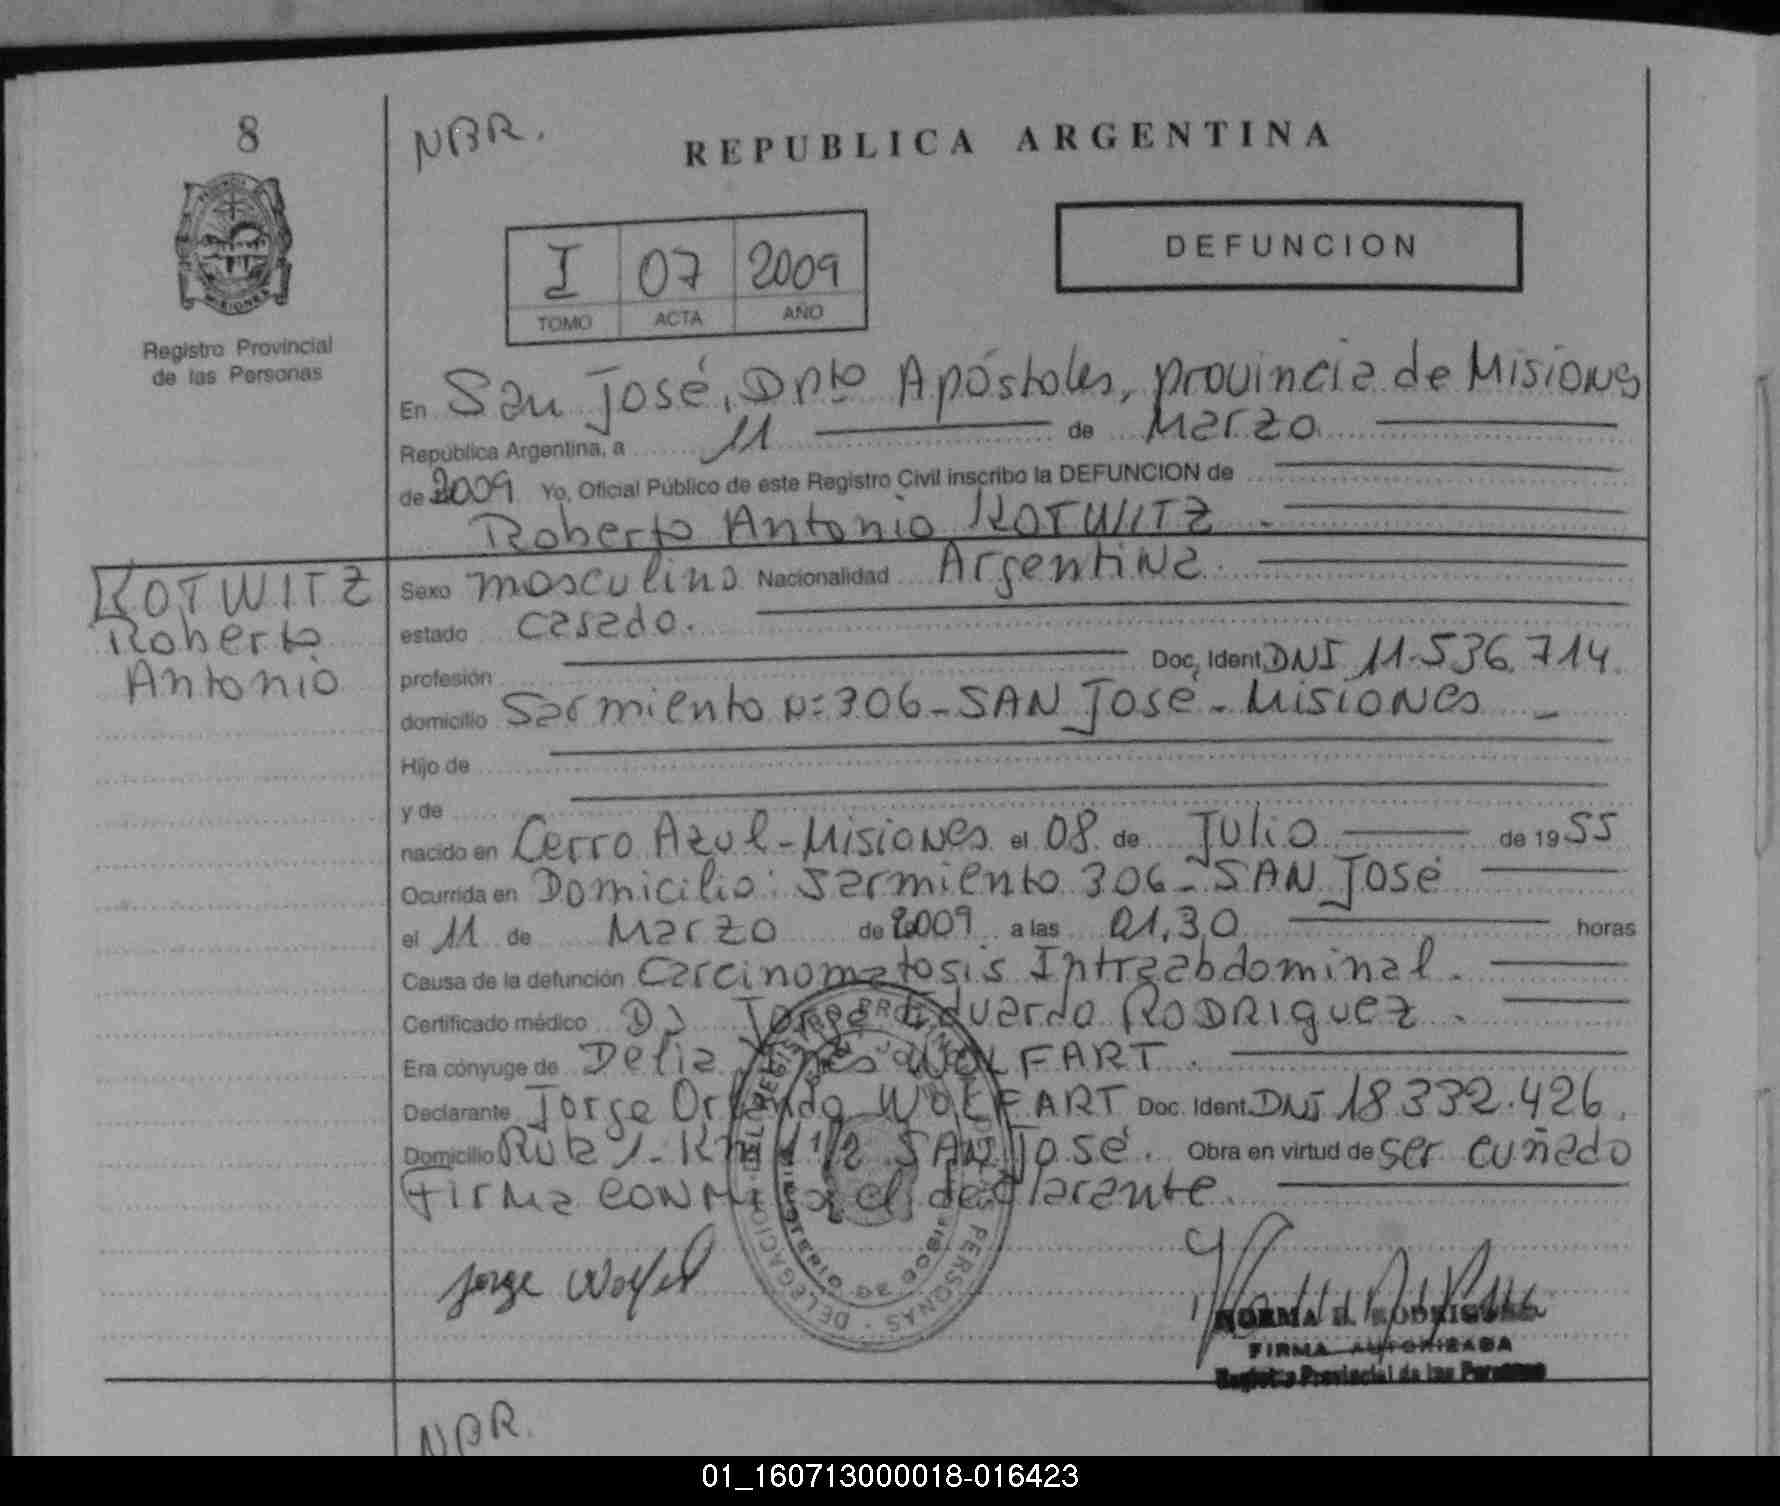 8
NBR.
REPUBLICA ARGENTINA
I 07 2009
TOMO ACTA AÑO
DEFUNCION
MISIONES
Registro Provincial
de las Personas
En San José, Dpto Apóstoles, provincia de Misiones
República Argentina, a 11 de Marzo
de 2009 Yo, Oficial Público de este Registro Civil inscribo la DEFUNCION de
Roberto Antonio KOTWITZ.
KOTWITZ
Roberto
Antonio
Sexo masculino Nacionalidad Argentina.
estado casado.
profesión Doc. Ident. DNI 11.536.714.
domicilio Sarmiento N: 306 - SAN José - Misiones -
Hijo de
y de
nacido en Cerro Azul - Misiones el 08 de Julio de 1955
Ocurrida en Domicilio: Sarmiento 306 - SAN José
el 11 de Marzo de 2009 a las 01,30 horas
Causa de la defunción Carcinomatosis Intraabdominal.
Certificado médico Dr Jorge Eduardo RODRIguez.
Era cónyuge de Delia Ines WOLFART.
Declarante Jorge Orlando WOLFART Doc. Ident. DNI 18.332.426.
Domicilio Ruta 1 - Km 1 1/2 SAN José. Obra en virtud de ser cuñado
Firma conmigo el declarante.
Jorge Wolfart
NORMA B. RODRIGUEZ
FIRMA AUTORIZADA
Registro Provincial de las Personas
NBR.
01_160713000018-016423